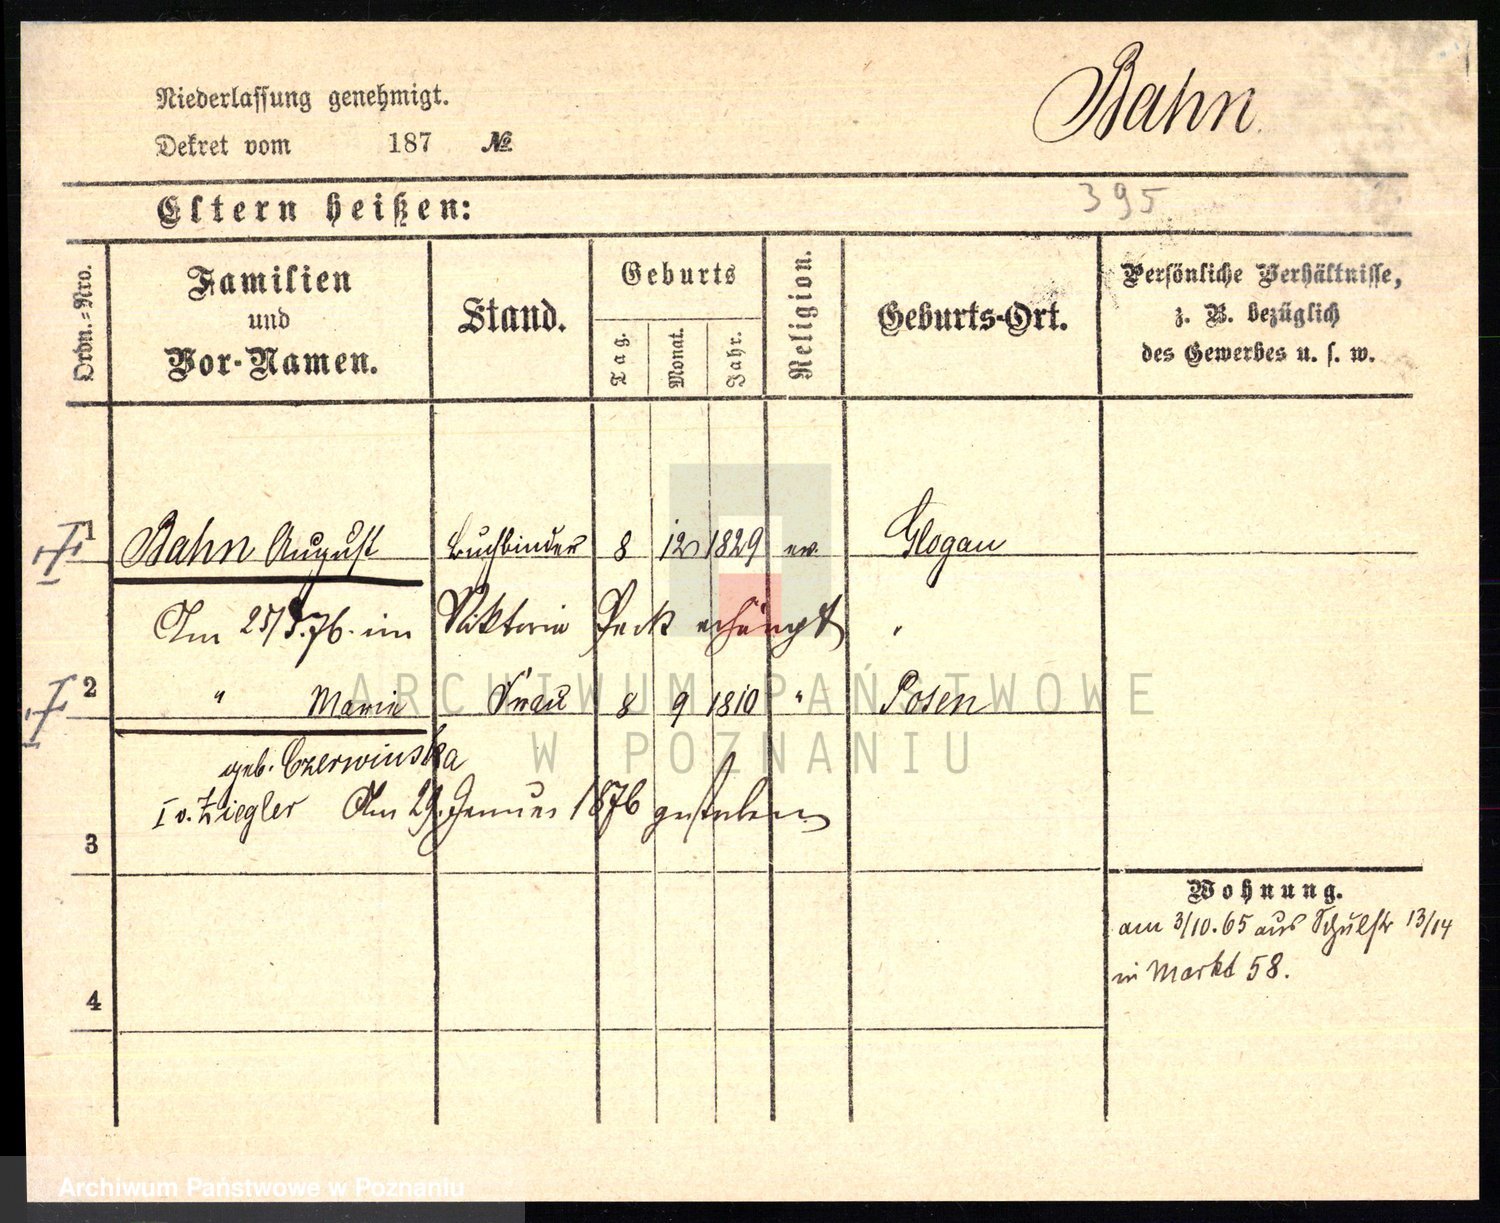 Niederlassung genehmigt.
Dekret vom 187 №
Bahn
Eltern heißen:
395
Ordn.-Nro.
Familien
und
Vor-Namen.
Stand.
Geburts
Tag.
Monat.
Jahr.
Religion.
Geburts-Ort.
Persönliche Verhältnisse,
z. B. bezüglich
des Gewerbes u. s. w.
1 Bahn August Buchbinder 8 12 1829 ev. Glogau
Am 25/5.76. im Viktoria Park erhängt
2 " Marie Frau 8 9 1810 " Posen
geb. Czerwinska
I v. Ziegler Am 29. Januar 1876 gestorben
3
Wohnung.
am 3/10.65 aus Schulstr 13/14
in Markt 58.
4
ARCHIWUM PAŃSTWOWE
W POZNANIU
Archiwum Państwowe w Poznaniu